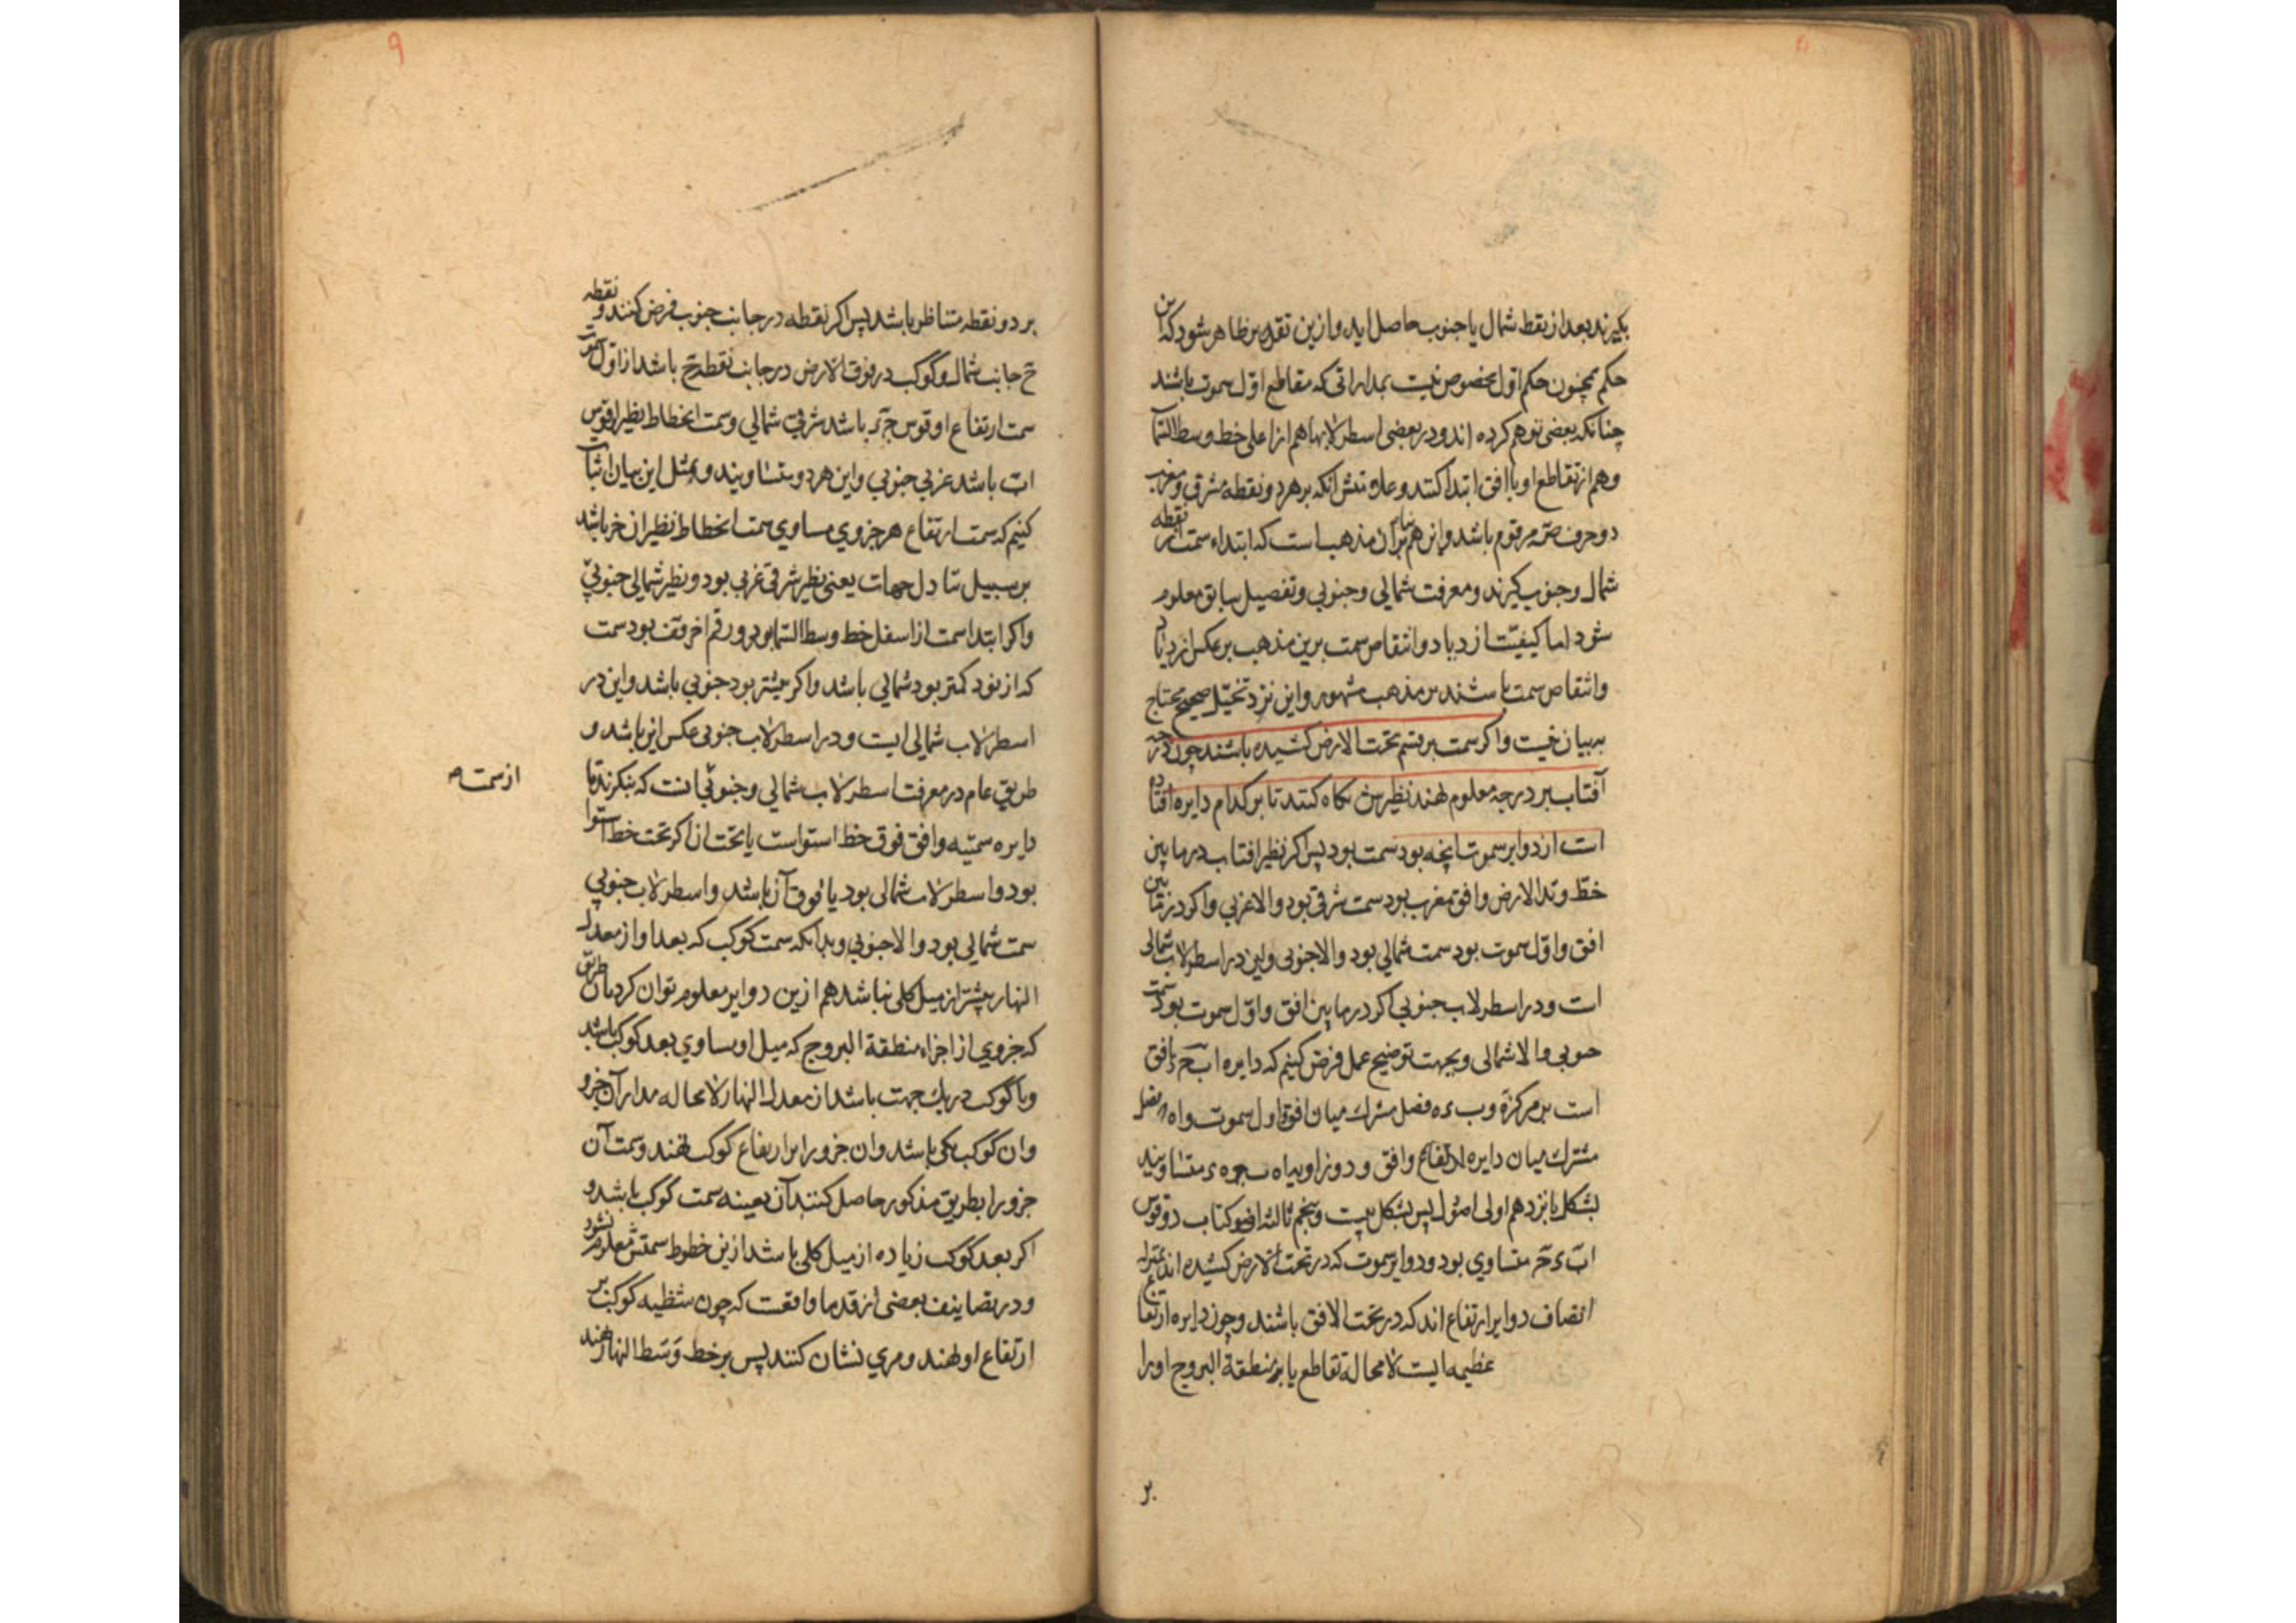 بگیرند بعد از نقطه شمال یا جنوب حاصل اید و ازین تقدیر ظاهر شود که این
حکم همچون حکم اول مخصوص نیست بمداراتی که مقاطع اول سموت باشند
چنانکه بعضی توهم کرده اند و در بعضی اسطرلابها هم از اعلی خط وسط السّما
و هم از تقاطع او با افق ابتدا کنند و علامتش آنکه بر هر دو نقطه مشرق و مغرب
دو حرف صَه مرقوم باشد و این هم بنابر آن مذهب است که ابتداء سمت از نقطه
شمال و جنوب گیرند و معرفت شمالی و جنوبی و تفصیل سابق معلوم
شود اما کیفیّت ازدیاد و انتقاص سمت برین مذهب بر عکس ازدیاد
و انتقاص سمت باشند بر مذهب مشهور و این نزد تخیّل صحیح محتاج
به بیان نیست و اگر سمت بر قسم تحت الارض کشیده باشند چون درجه
آفتاب بر درجه معلوم نهند نظیرش نگاه کنند تا بر کدام دایره افتاده
است از دوایر سموت آنچه بود سمت بود پس اگر نظیر افتاب در ما بین
خطّ وتد الارض و افق مغرب بود سمت شرقی بود و الا غربی و اگر در مابین
افق و اول سموت بود سمت شمالی بود و الا جنوبی و این در اسطرلاب شمالی
است و در اسطرلاب جنوبی اگر در ما بین افق و اول سموت بود سمت
جنوبی و الا شمالی و بجهت توضیح عمل فرض کنیم که دایره اب حَ ءَ افق
است بر مرکز هَ و ب ه ء فصل مشترک میان افق و اول سموت و اه فصل
مشترک میان دایره الارتفاع و افق و دو زاویه متساویند
بشکل پانزدهم اولی اصول پس بشکل بیست و پنجم ثالثه دو قوس
اب ء ح متساوی بود و دوایر سموت که در تحت الارض کشیده اند بمنزله
انصاف دوایر ارتفاع اند که در تحت الافق باشند و چون دایره ارتفاع
عظیمه ایست لا محاله تقاطع یا بر منطقة البروج او را
بر
۹
بر دو نقطه متناظر باشد پس اگر نقطه در جانب جنوب فرض کنند و نقطه
حَ جانب شمال و کوکب در فوق الارض در جانب نقطه حَ باشد از اول سموت
سمت ارتفاع او قوس باشد شرقی شمالی و سمت انحطاط نظیر او قوس
اب باشد غربی جنوبی و این هر دو متساویند و بمثل این بیان اثبات
کنیم که سمت ارتفاع هر جزوی مساوی سمت انحطاط نظیر ان جز باشد
بر سبیل تبادل جهات یعنی نظیر شرقی غربی بود و نظیر شمالی جنوبی
و اگر ابتدا سمت از اسفل خط وسط السّما بود و رقم اخر بود سمت
که از نود کمتر بود شمالی باشد و اگر بیشتر بود جنوبی باشد و این در
اسطرلاب شمالی ایست و در اسطرلاب جنوبی عکس این باشد و
طریق عام در معرفت اسطرلاب شمالی و جنوبی آنست که بنگرند تا
از سمت
دایره سمتیه و افق فوق خط استواست یا تحت ان اگر تحت خط استوا
بود و اسطرلاب شمالی بود یا فوق آن باشد و اسطرلاب جنوبی
سمت شمالی بود و الا جنوبی و بدانکه سمت کوکب که بعد او از معدل
النهار بیشتر از میل کلی نباشد هم ازین دوایر معلوم توان کرد بان طریق
که جزوی از اجزاء منطقة البروج که میل او مساوی بعد کوکب باشد
و با کوکب در یک جهت باشد از معدل النهار لا محاله مدار آن جزو
و ان کوکب یکی باشد و ان جزو را بر ارتفاع کوکب نهند و سمت آن
جزو را بطریق مذکور حاصل کنند آن بعینه سمت کوکب باشد و
اگر بعد کوکب زیاده از میل کلی باشد ازین خطوط سمتش معلوم نشود
و در تصانیف بعضی از قدما واقعست که چون شظیه کوکب بر
ارتفاع او نهند و مری نشان کنند پس بر خط وَسَط النهار نهند